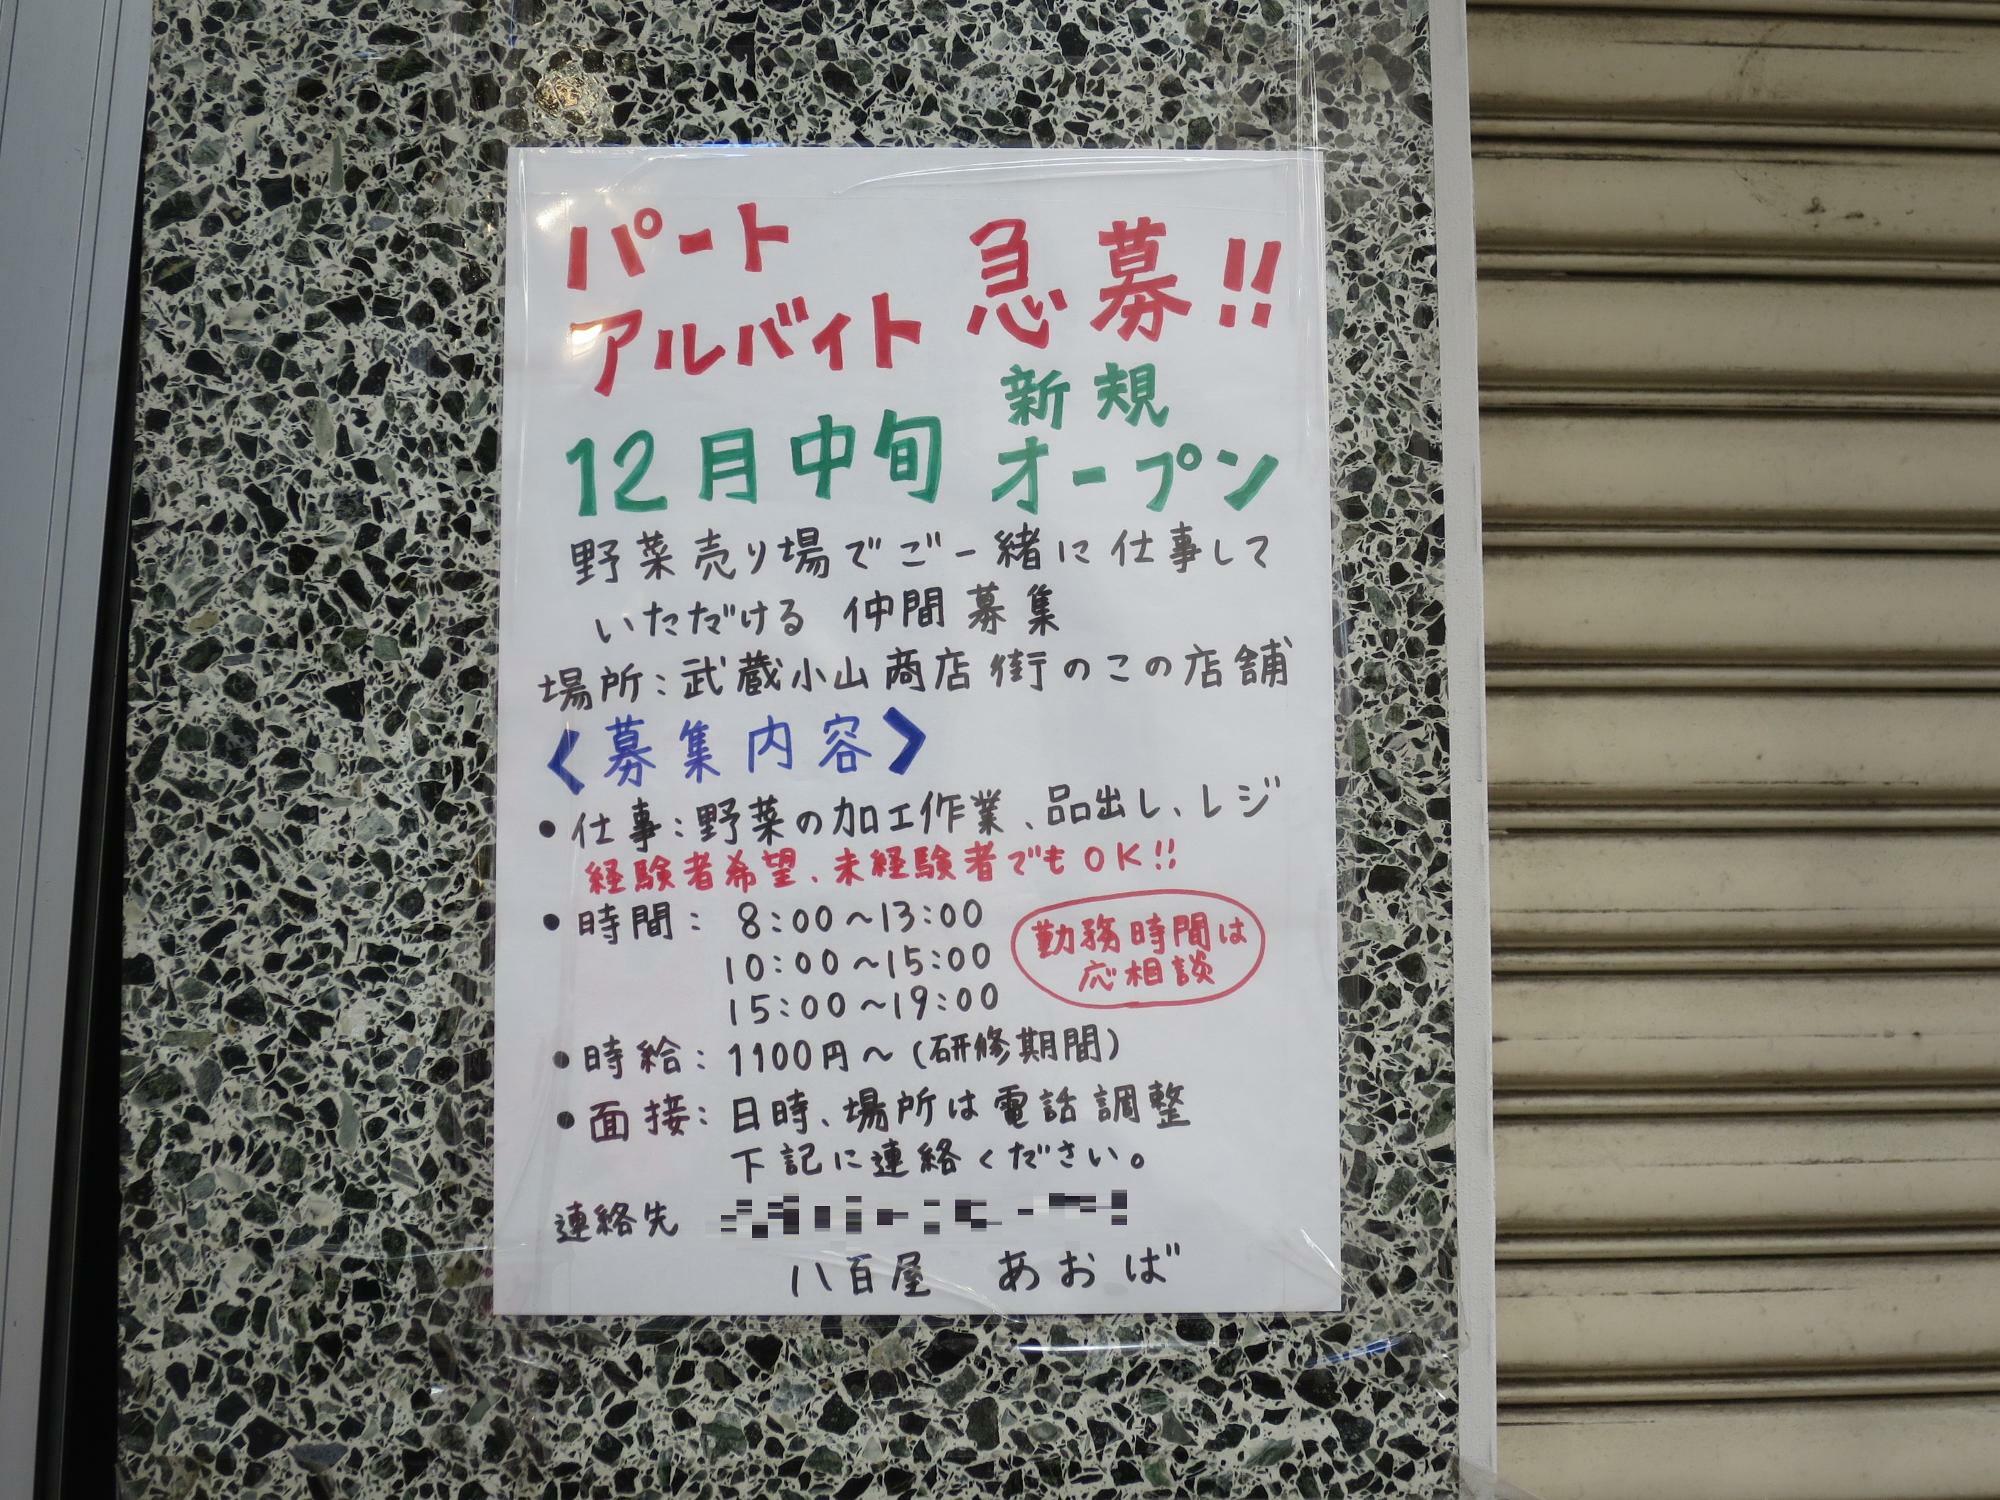 パート
アルバイト 急募!!
12月中旬 新規
オープン
野菜売り場でご一緒に仕事して
いただける 仲間募集
場所:武蔵小山商店街のこの店舗
<募集内容>
•仕事:野菜の加工作業、品出し、レジ
経験者希望、未経験者でもOK!!
•時間: 8:00~13:00
10:00~15:00
15:00~19:00
勤務時間は
応相談
•時給:1100円~(研修期間)
•面接:日時、場所は電話調整
下記に連絡ください。
連絡先
八百屋 あおば